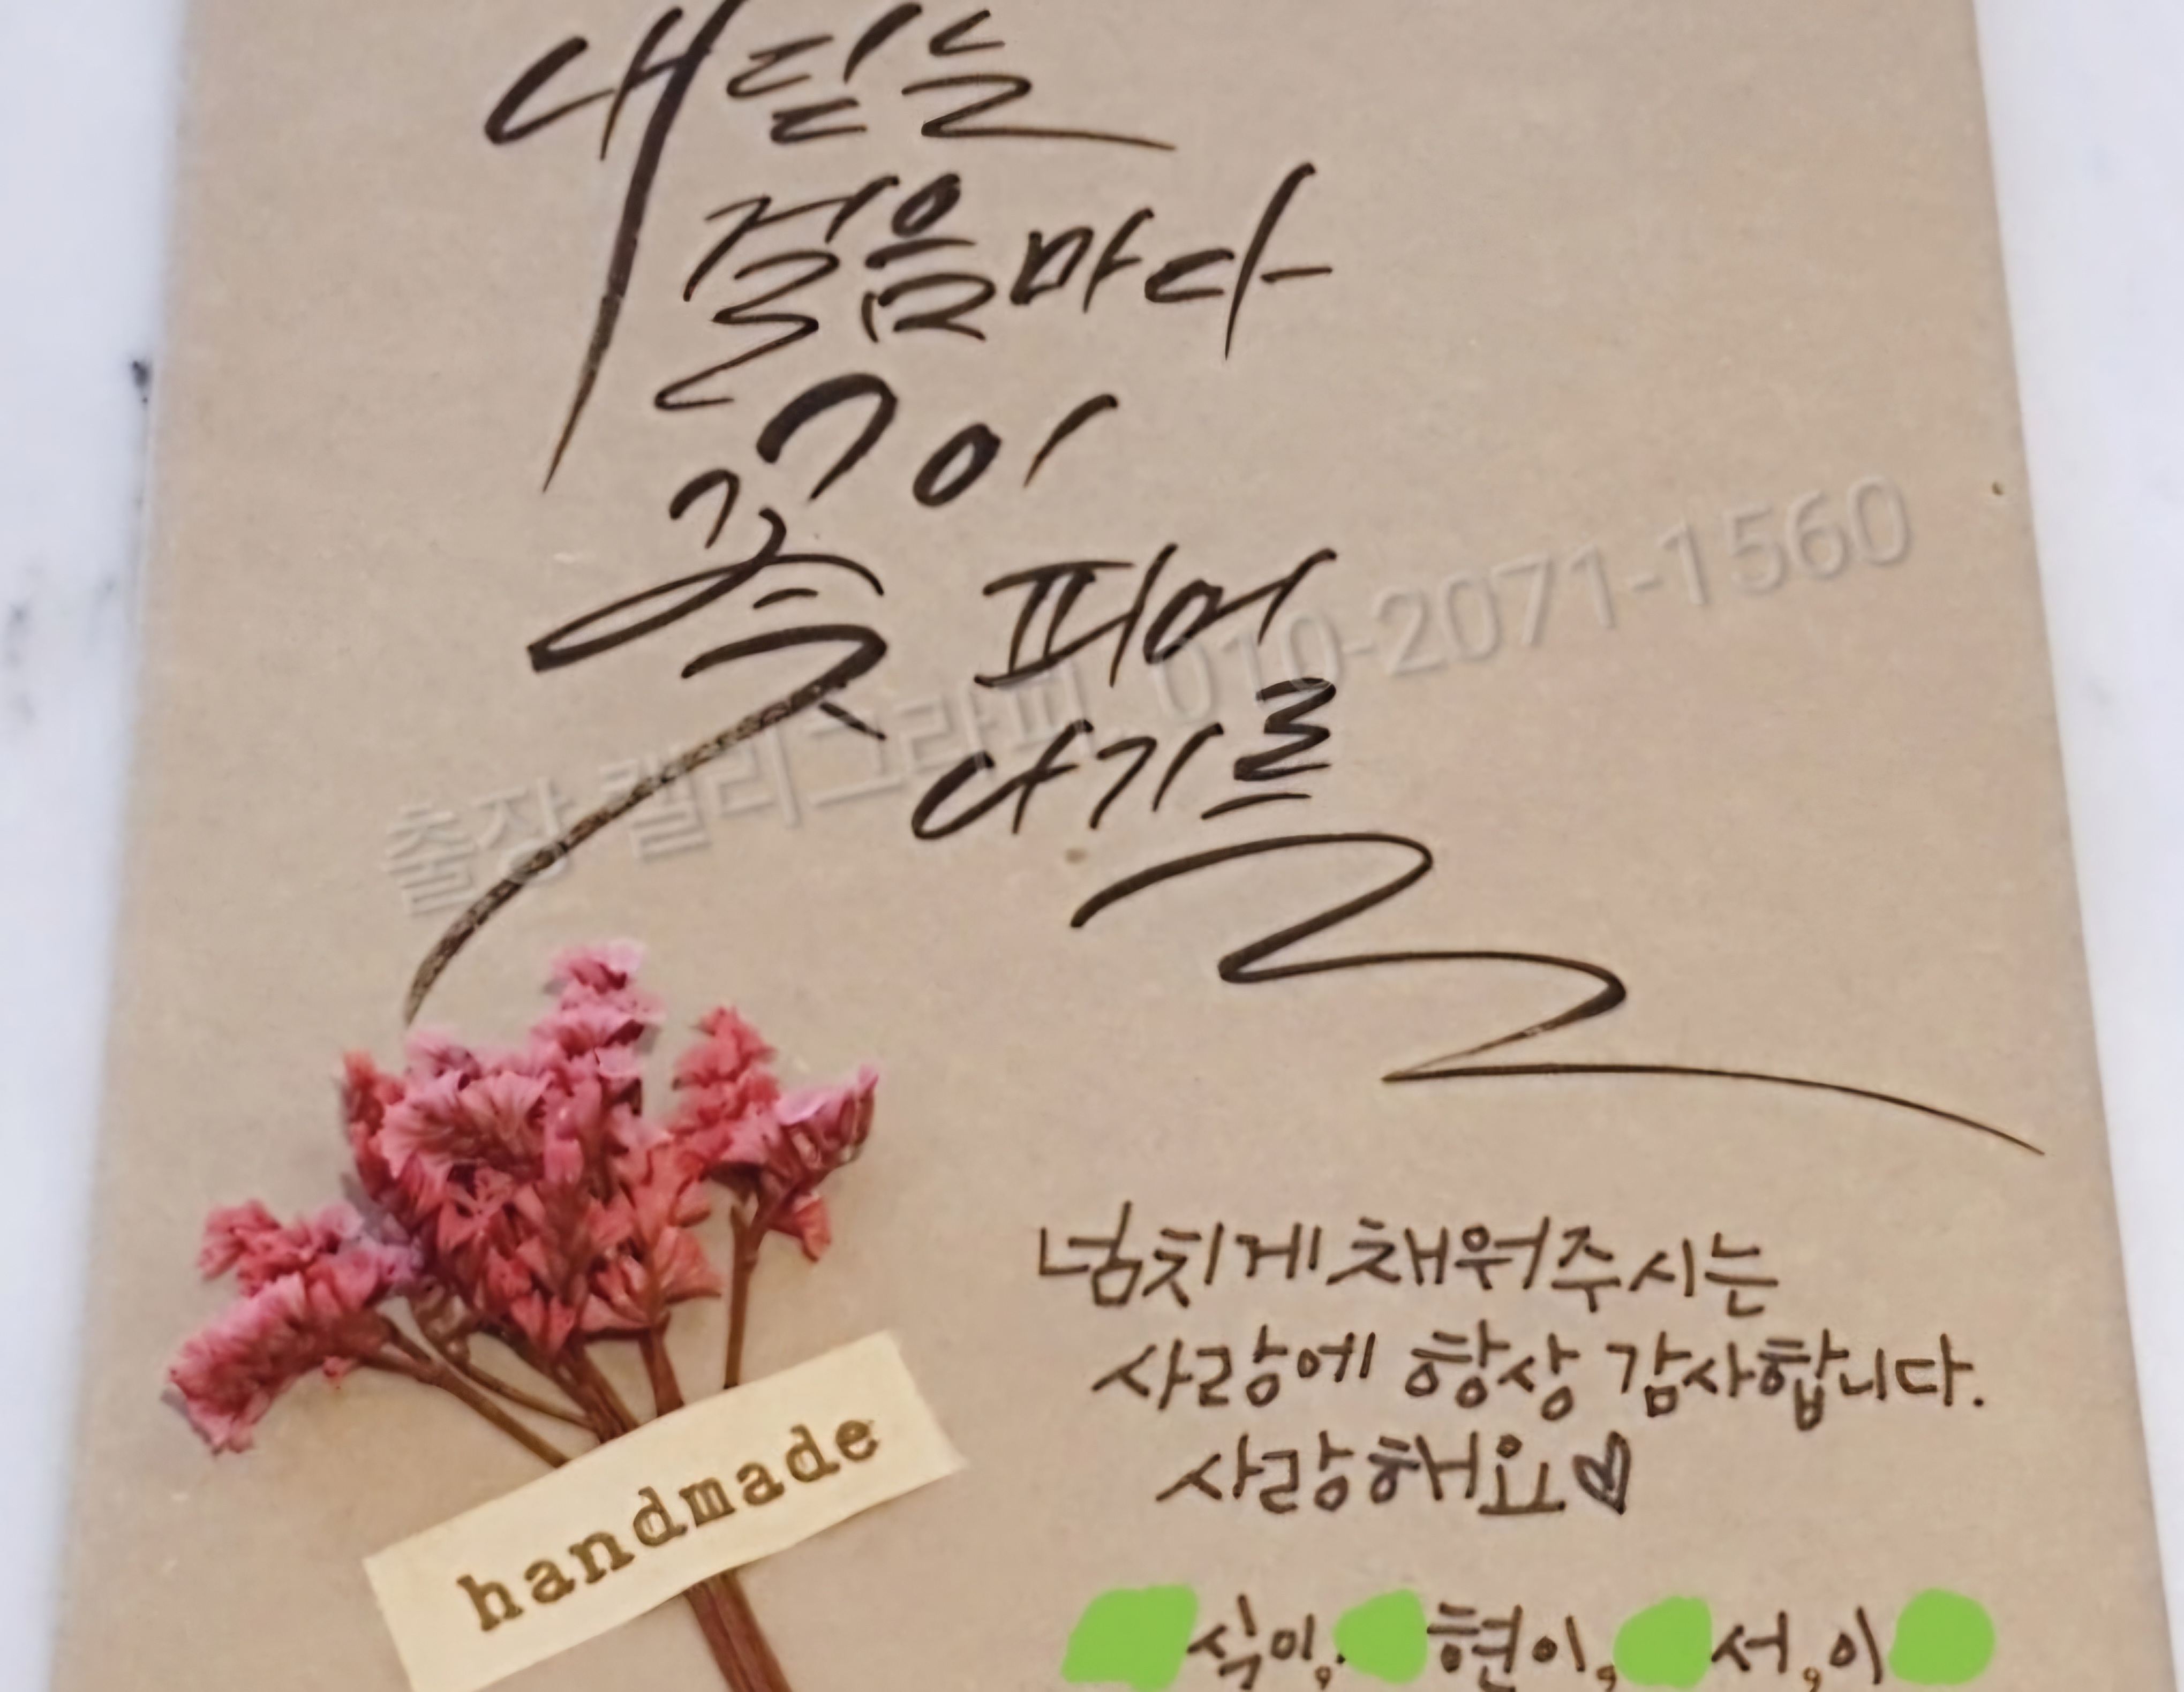 내딛는
걸음마다
꽃이
피어
나기를
출장 캘리그라피 010-2071-1560
넘치게 채워주시는
사랑에 항상 감사합니다.
사랑해요♡
handmade
식이, 현이, 서, 이